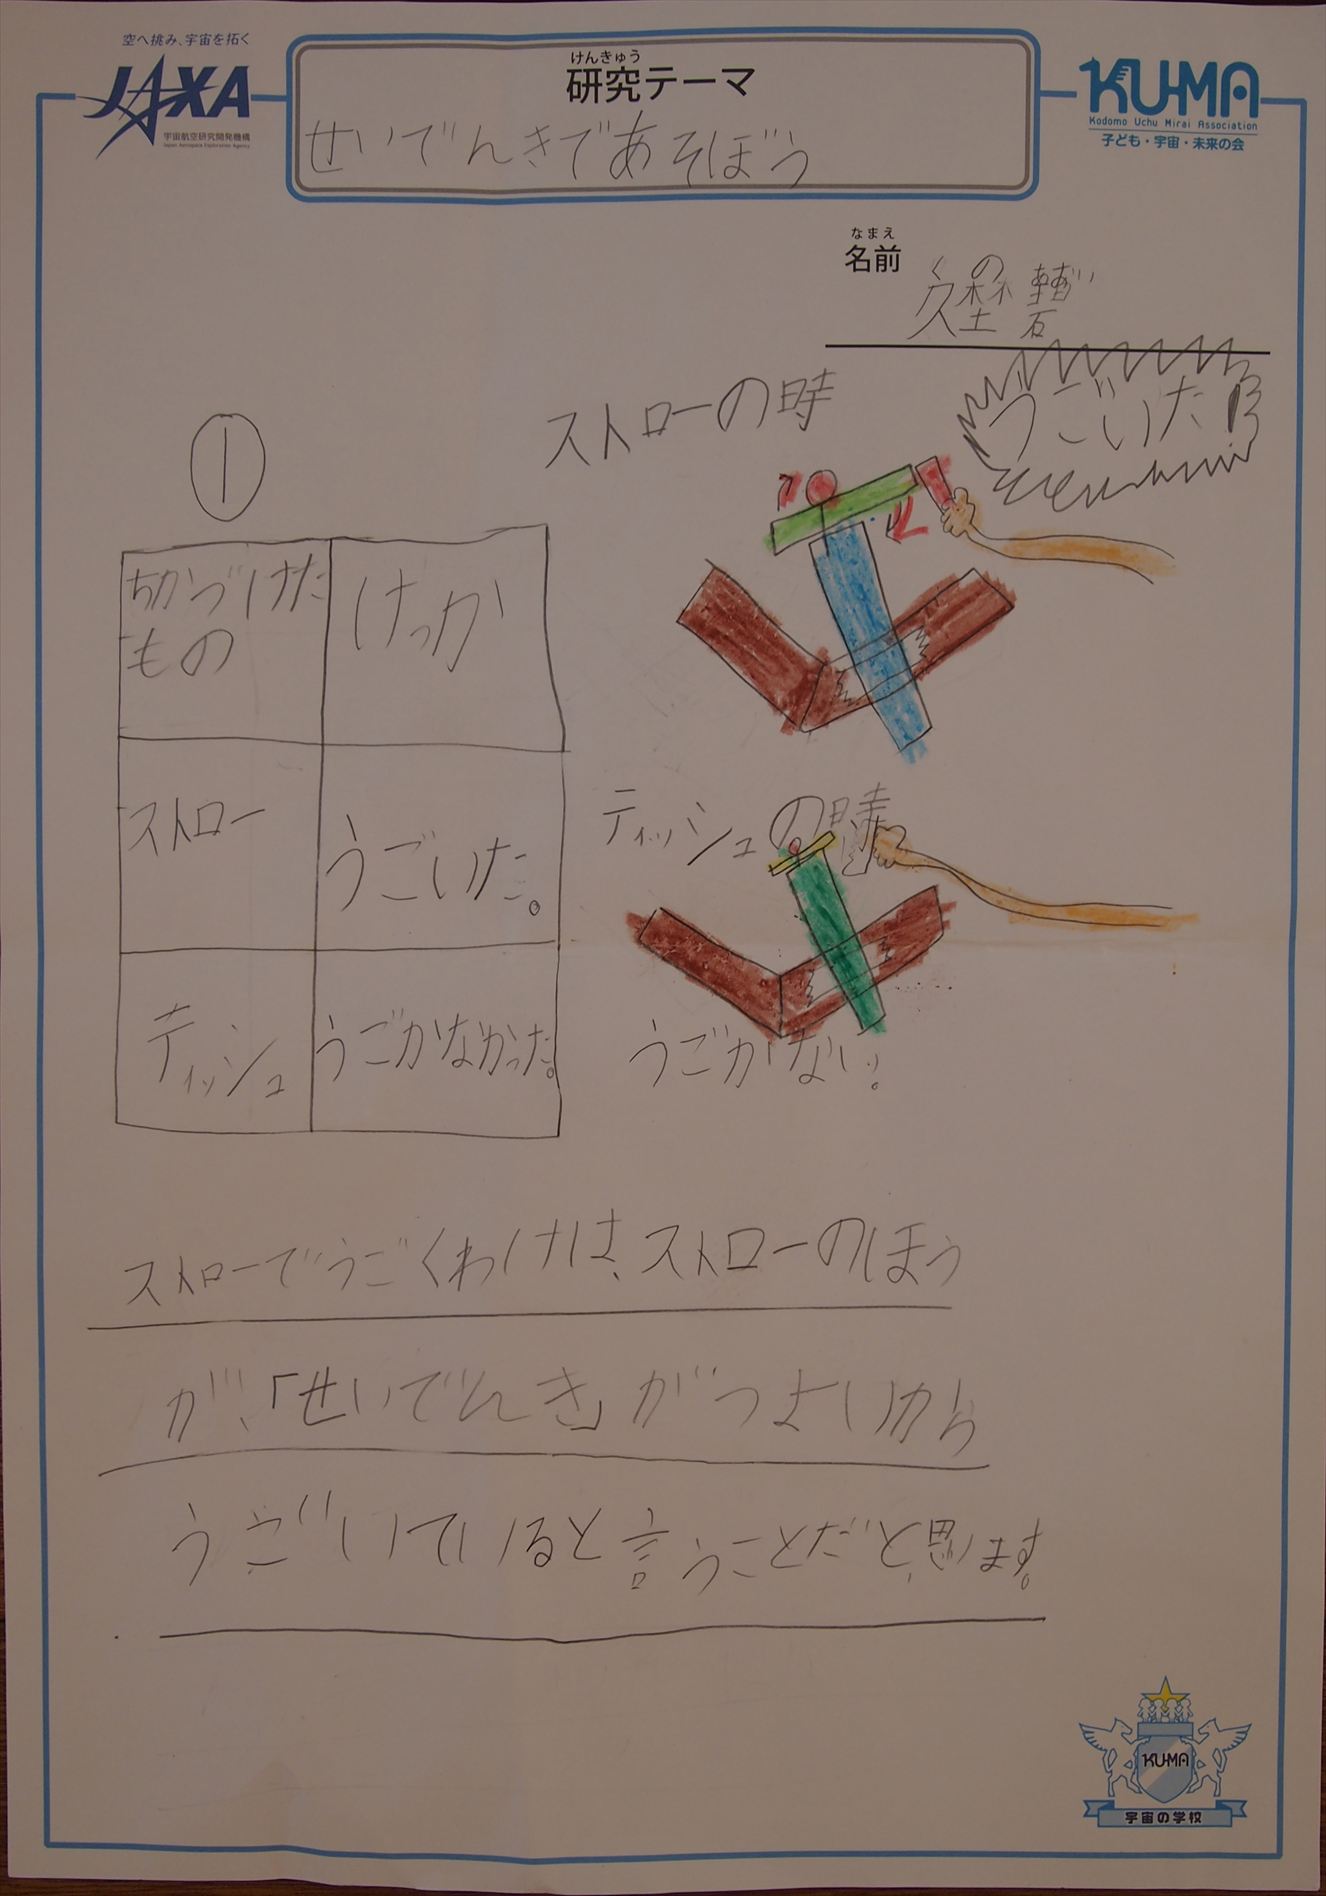 空へ挑み、宇宙を拓く
JAXA
宇宙航空研究開発機構
Japan Aerospace Exploration Agency
けんきゅう
研究テーマ
せいでんきであそぼう
KU-MA
Kodomo Uchu Mirai Association
子ども・宇宙・未来の会
なまえ
名前
くの
久埜 碧
ストローの時
うごいた
①
ちかづけた
もの
けっか
ストロー
うごいた。
ティッシュ
うごかなかった。
ティッシュの時
うごかない。
ストローでうごくわけは、ストローのほう
が、「せいでんき」がつよいから
うごいていると言うことだと、思います。
KU-MA
宇宙の学校